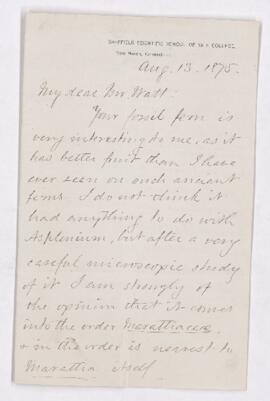 SHEFFIELD SCIENTIFIC SCHOOL OF YALE COLLEGE,
New Haven, Connecticut,
Aug. 13. 1875.
My dear Mr Watt:
Your fossil fern is
very interesting to me, as it
has better fruit than I have
ever seen on such ancient
ferns. I do not think it
had anything to do with
Asplenium, but after a very
careful microscopic study
of it I am strongly of
the opinion that it comes
into the order Marattiaceae
& in the order is nearest to
Marattia itself